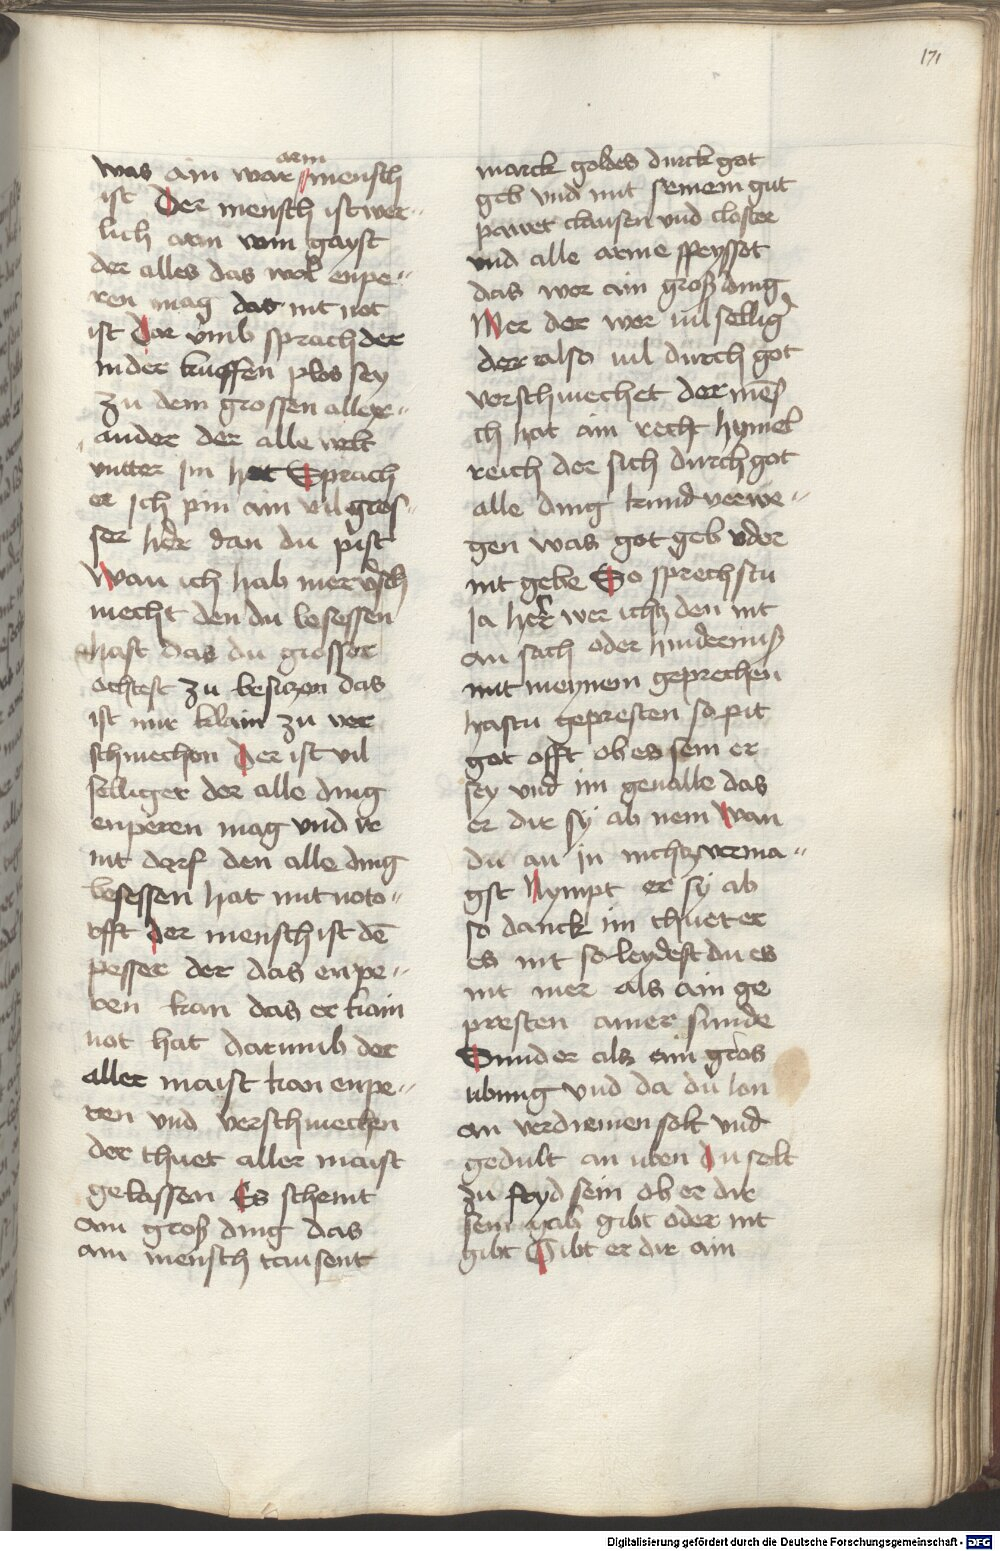 171
was ain war arm mensch
ist Der mensch ist wer-
lich arm vom gayst
der alles das wol enpe-
ren mag das nit not
ist Dar vmb sprach der
in der kuffen plos sey
zu dem grossen allex-
ander der alle welt
vntter im het Sprach
er ich pin ain vil gros-
ser her dan du pist
Wan ich hab mer versch
mecht den du besessen
hast das du grosser
achtest zu besiczen das
ist mir klain zu ver
schmechen Der ist vil
selliger der alle ding
enperen mag vnd ir
nit darf den alle ding
besessen hat mit noto-
rfft Der mensch ist dē
pesser der das enpe-
ren kan das er kain
not hat darumb der
aller maist kan enpe-
ren vnd verschmechen
der thuet aller maist
gelassen Es scheint
ain groß ding das
ain mensch tausent
marck goldes durck got
geb vnd mit seinem gut
pawet clausen vnd closter
vnd alle arme speysset
das wer ain groß ding
Wer der wer vil sellig
der also vil durch got
verschmechet der mēs
ch hat ain recht hymel
reich der sich durch got
alle ding kund verwe-
gen was got geb oder
nit gebe So sprechstu
Ja her wer ichs den nit
an sach oder hindernuß
mit meynem geprechen
hastu gepresten so pit
got offt ob es sein er
sey vnd im geualle das
er dir sy ab nem Wan
du an in nichtz verma-
gst Nympt er sy ab
so danck im thuet er
es nit so leydest du es
nit mer als ain ge
presten ainer sunde
Sunder als ein gros
ubung vnd da du lon
an verdienen solt vnd
gedult an uben Du solt
zu fryd sein ob er dir
sein gab gibt oder nit
gibt Gibt er dir ain
Digitalisierung gefördert durch die Deutsche Forschungsgemeinschaft - DFG